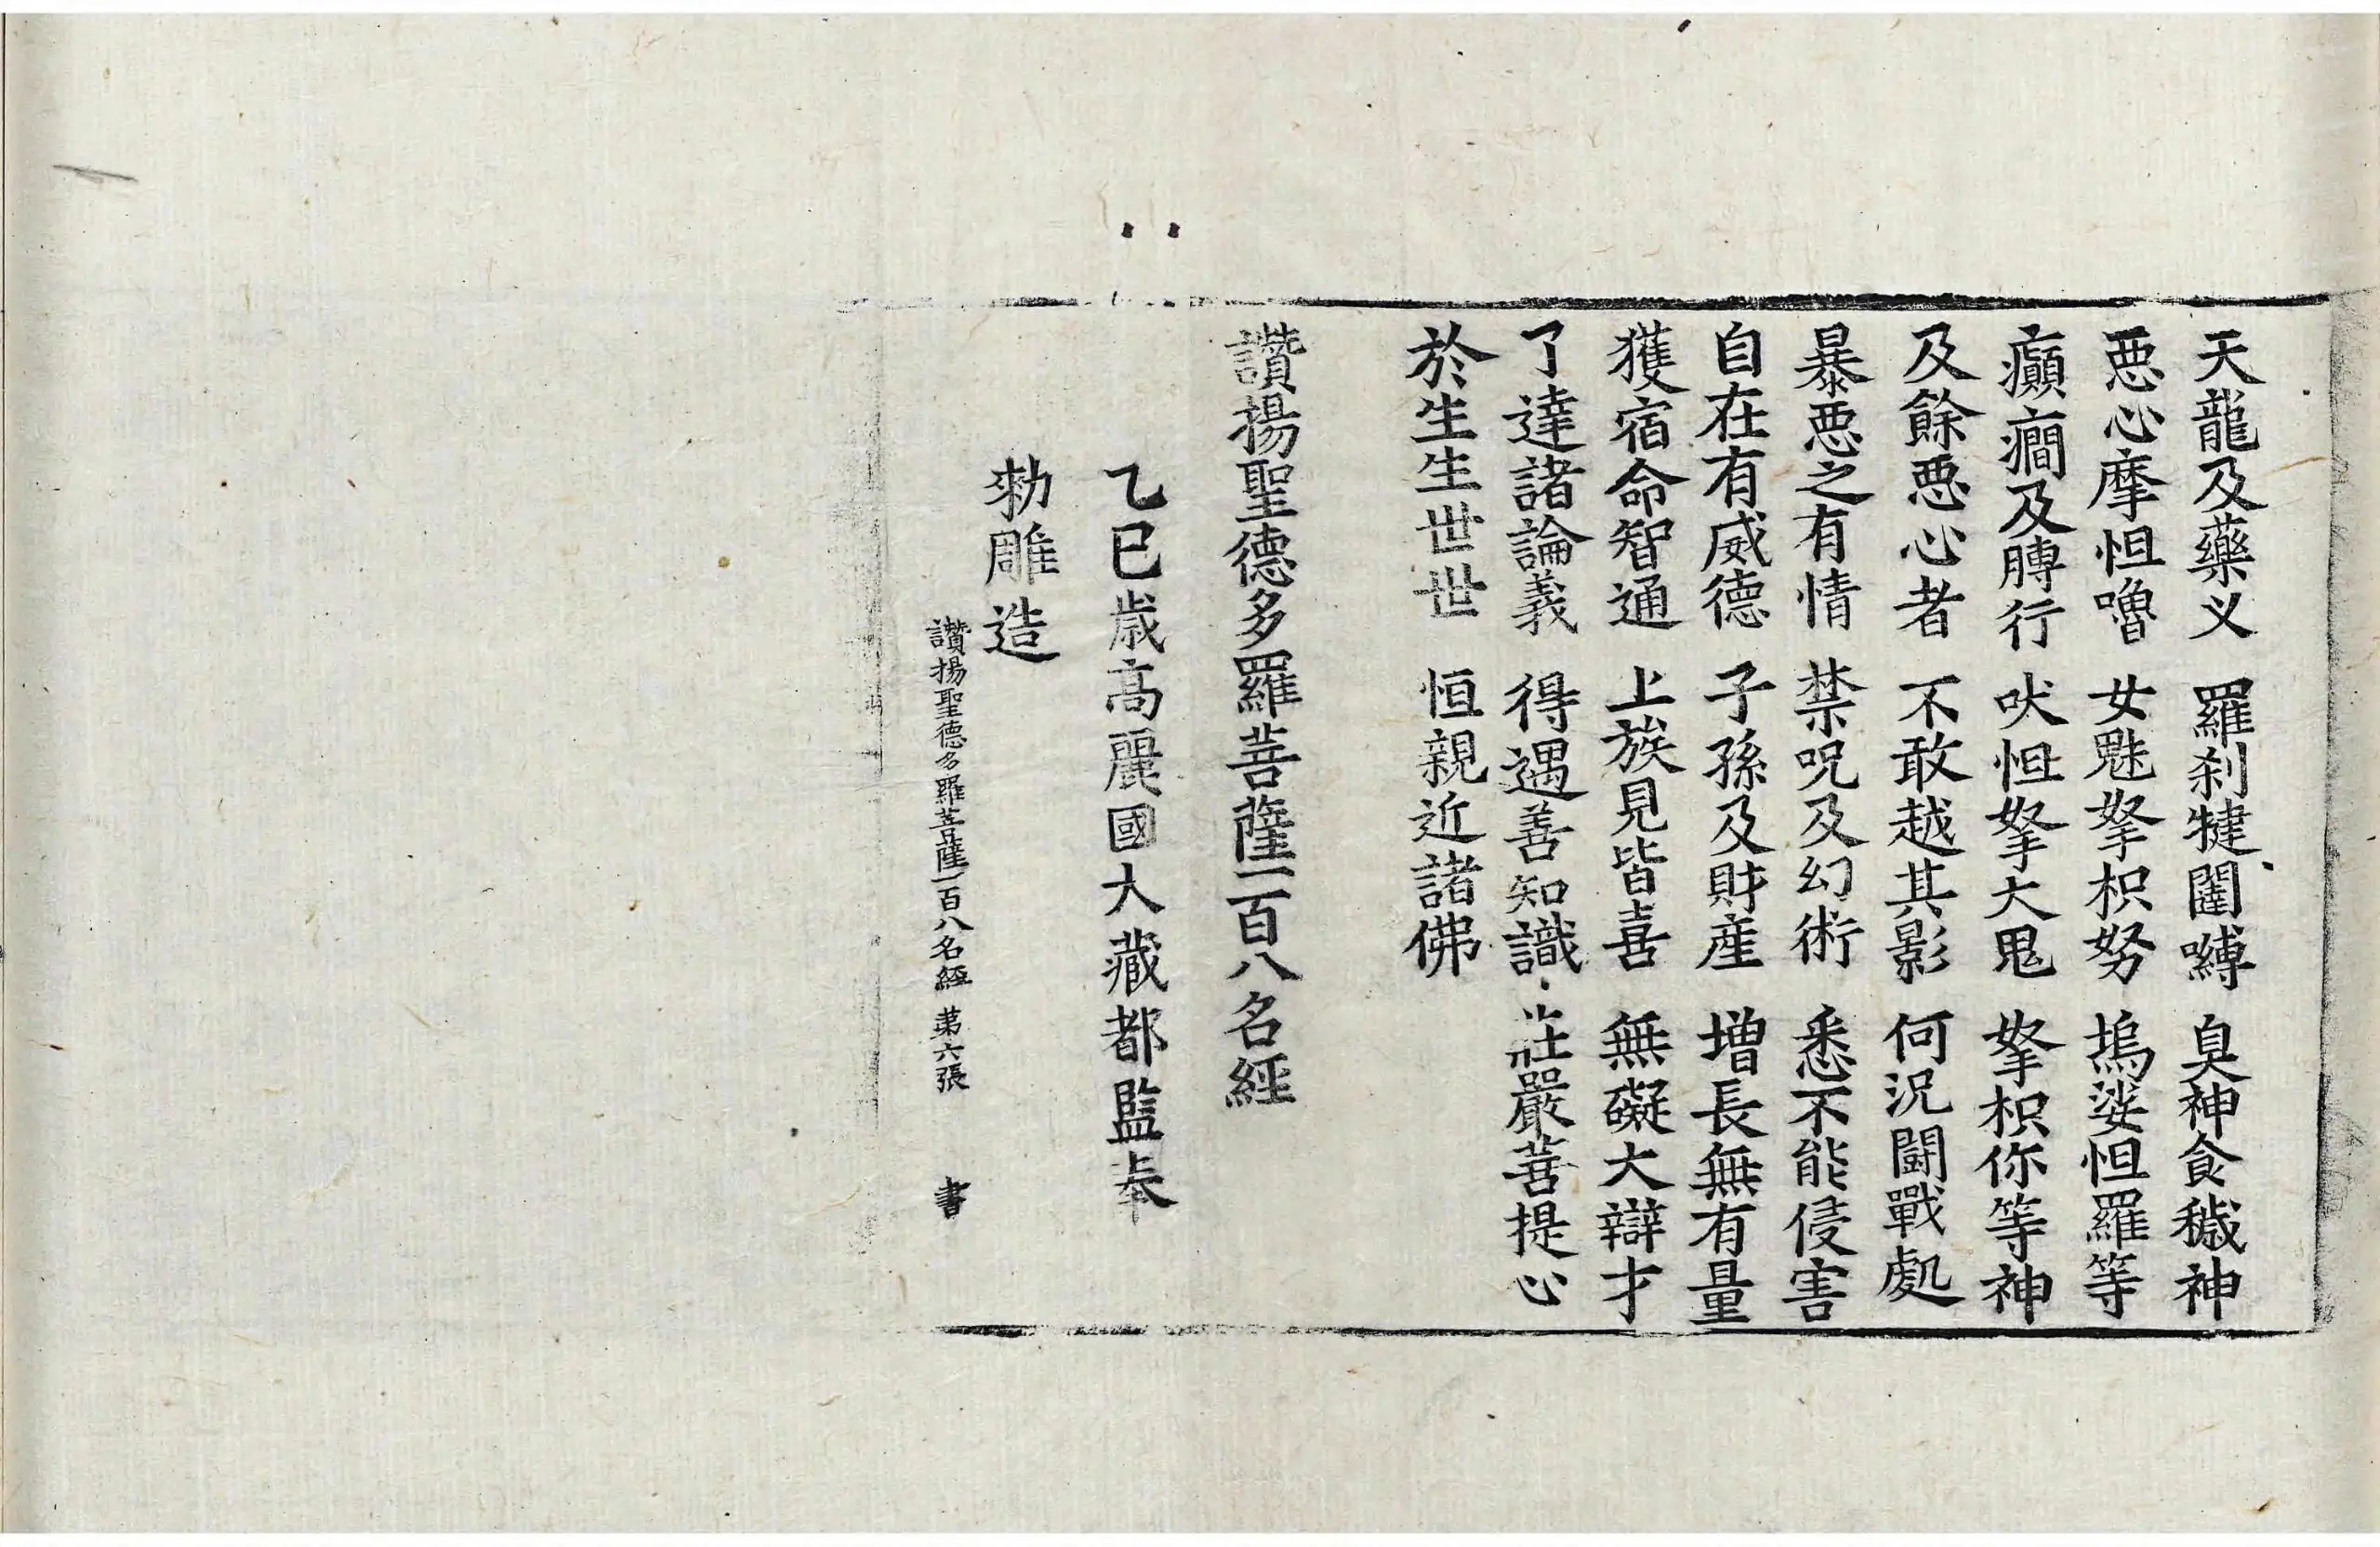 天龍及藥义　羅刹犍闥嚩　臭神食穢神
惡心摩怛嚕　女魅拏枳努　塢娑怛羅等
癲癇及膊行　吠怛拏大鬼　拏枳你等神
及餘惡心者　不敢越其影　何況鬪戰處
暴惡之有情　禁呪及幻術　悉不能侵害
自在有威德　子孫及財產　增長無有量
獲宿命智通　上族見皆喜　無礙大辯才
了達諸論義　得遇善知識　莊嚴菩提心
於生生世世　恒親近諸佛
讚揚聖德多羅菩薩一百八名經
乙巳歲高麗國大藏都監奉
勑雕造
讚揚聖德多羅菩薩一百八名經　第六張　書